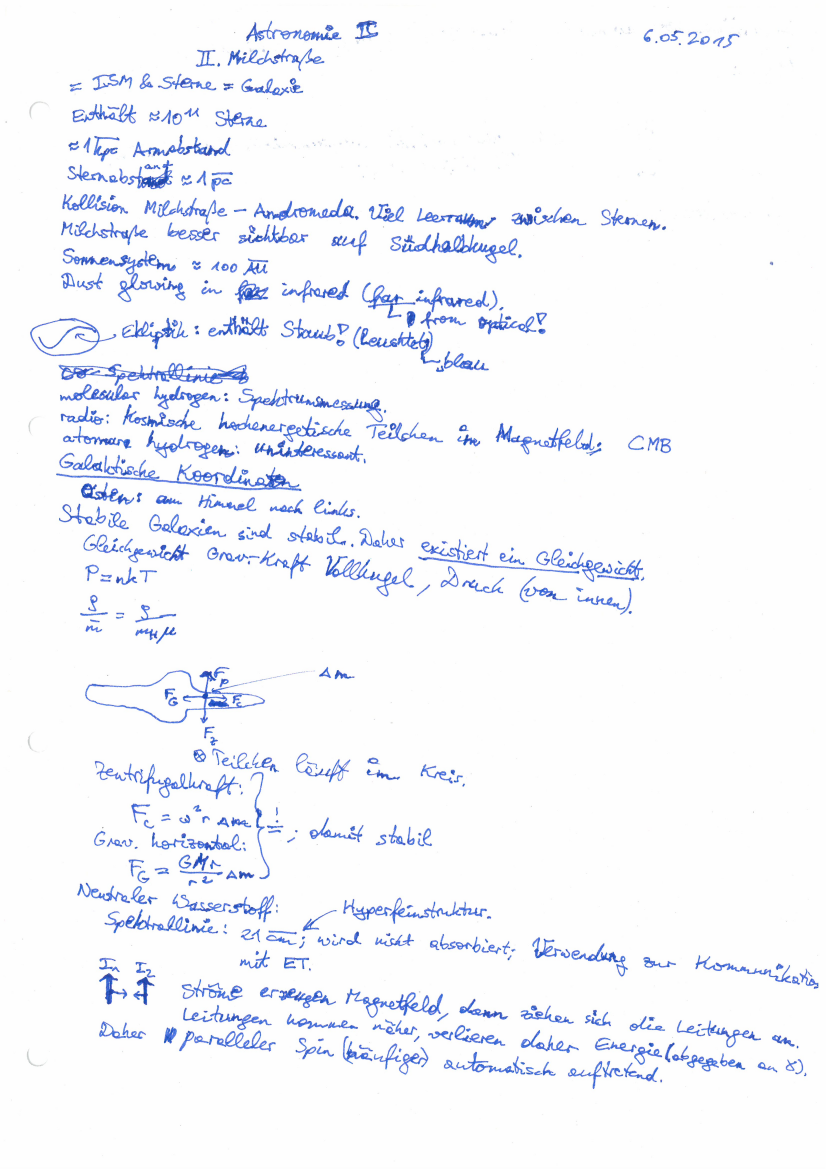 Astronomie II
6.05.2015
II. Milchstraße
= ISM & Sterne = Galaxie
Enthält ≈ 10¹¹ Sterne
≈ 1 kpc Armabstand
Sternabstand ≈ 1 pc
Kollision Milchstraße - Andromeda. Viel Leerraum zwischen Sternen.
Milchstraße besser sichtbar auf Südhalbkugel.
Sonnensystem ≈ 100 AU
Dust glowing in infrared (far infrared).
from optical!
Ekliptik: enthält Staub! (leuchtet)
blau
Spektrallinie
molecular hydrogen: Spektrumsmessung.
radio: Kosmische hochenergetische Teilchen im Magnetfeld; CMB
atomare hydrogen: uninteressant.
Galaktische Koordinaten
Osten: am Himmel nach links.
Stabile Galaxien sind stabil. Daher existiert ein Gleichgewicht.
Gleichgewicht Grav.-Kraft Vollkugel, Druck (von innen).
P = nkT
ρ/m̄ = ρ/(m_H μ)
F_p Δm
F_G F_c
F_z
⊗ Teilchen läuft im Kreis.
Zentrifugalkraft:
F_c = ω² r Δm
! = ; damit stabil
Grav. horizontal:
F_G = GMr/r² Δm
Neutraler Wasserstoff:
Hyperfeinstruktur.
Spektrallinie: 21 cm; wird nicht absorbiert; Verwendung zur Kommunikation
mit ET.
I₁ I₂
Ströme erzeugen Magnetfeld, dann ziehen sich die Leitungen an.
Leitungen kommen näher, verlieren daher Energie (abgegeben an γ).
Daher paralleler Spin (häufiger) automatisch auftretend.